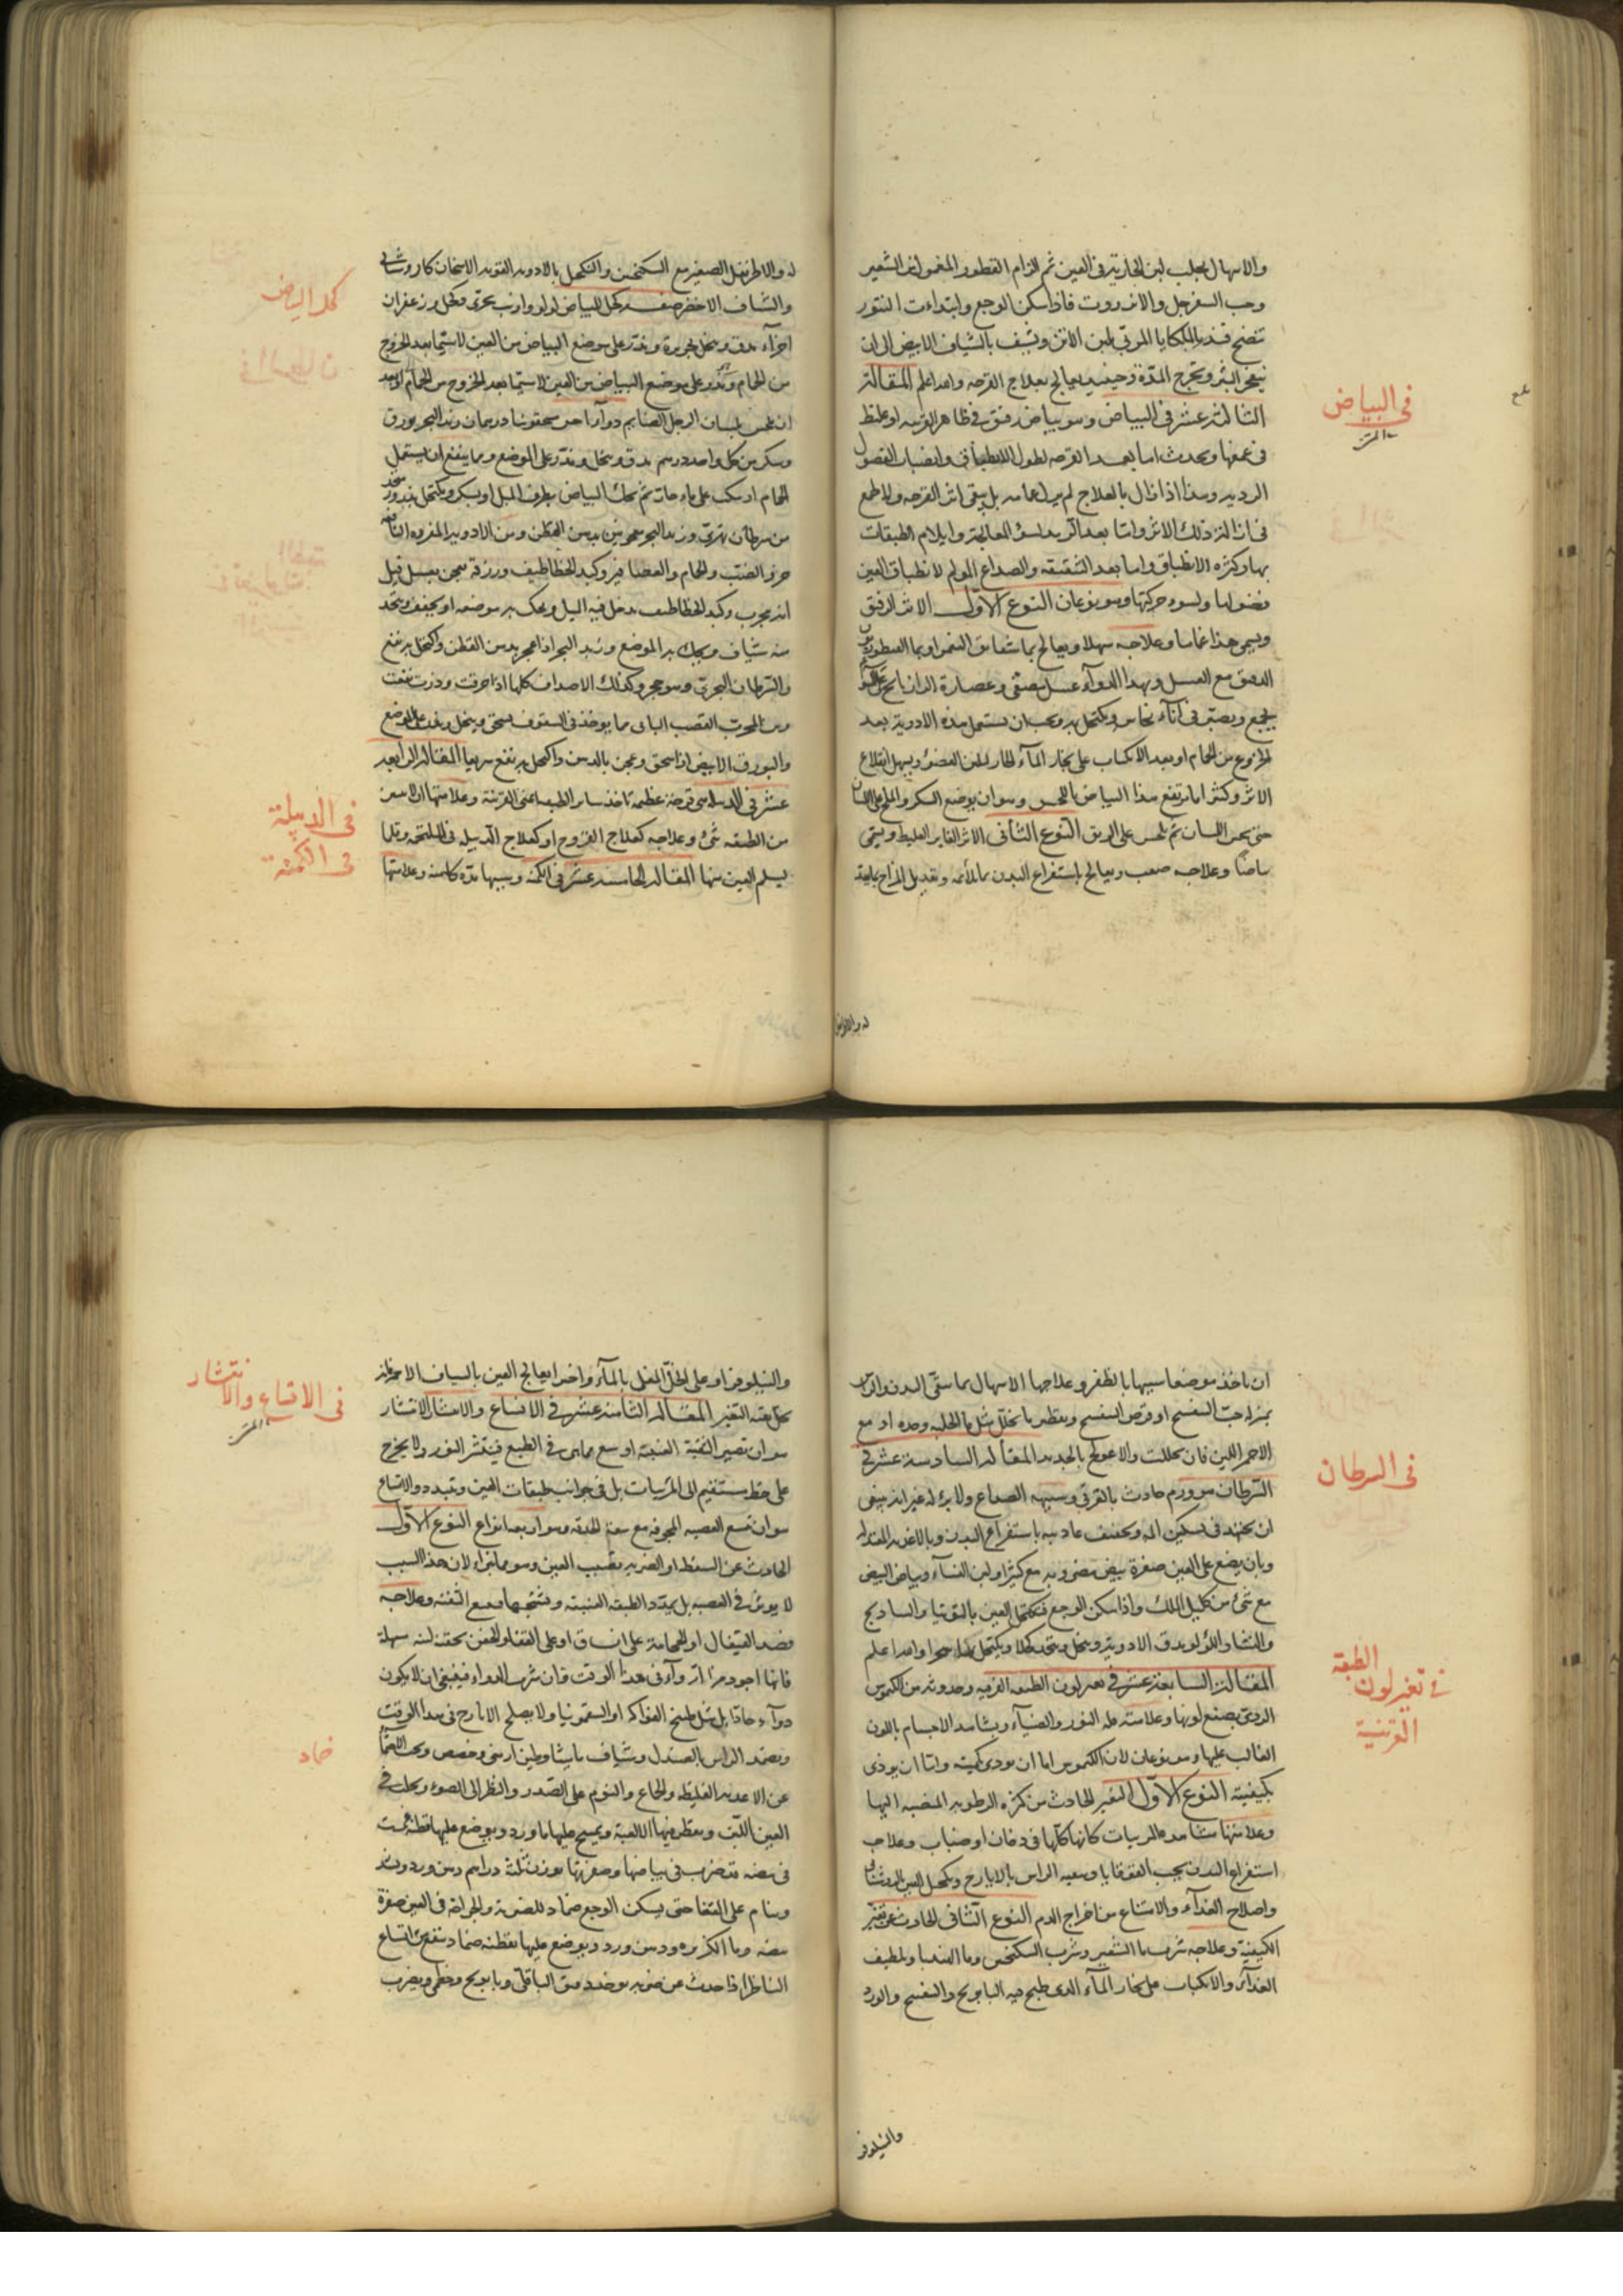 والاسهال بحلب لبن الجارية فى العين ثم الزام القطور المغموس الشعير
وحب السفرجل والانزروت فاذا سكن الوجع وابتداءت النتور
تنضح فيذر بالملكايا المربى بلبن الاتن وشيف بالشياف الابيض الى ان
ينفجر البثر وتخرج المدة وحينئذ يعالج بعلاج القرحه والله اعلم المقالة
الثالثة عشر فى البياض وهو بياض رقيق فى ظاهر القرنيه او غليظ
فى عمقها ويحدث اما بعد القرحه لطول الانطباق وانصباب الفضول
الرديه وهذا اذا زال بالعلاج لم يزل تمامه بل يبقى اثر القرحه ولا طمع
فى ازالة ذلك الاثر واما بعد الرمد لسوء المعالجة وايلام الطبقات
بها وكثره الانطباق واما بعد الشقيقه والصداع المولم لانطباق العين
وهو نوعان النوع الاول الاثر الرقيق
ويسمى هذا غماما وعلاجه سهل ويعالج بماء شقايق النعمن او بماء القنطوريون
الدقيق مع العسل وبهذا الدوآء عسل مصفى وعصارة الرازيانج
يجمع ويصير فى اناء نحاس ويكتحل به ويجب ان يستعمل هذه الادوية بعد
الخروج من الحمام او بعد الانكباب على بخار المآء الحار ليلين العضو ويسهل انقلاع
الاثر وكثيرا ما ينفع هذا البياض باللحس وهو ان يوضع السكر والملح على اللسان
حتى يخشن اللسان ثم يلحس على الريق النوع الثانى الاثر الغاير الغليظ ويسمى
بياضا وعلاجه صعب ويعالج باستفراغ البدن بما يلائمه وتعديل المزاج
فى البياض
له والاطريفل
له والاطريفل الصغير مع السكنجبين والتكحل بالادويه القويه الاسخان كاروشناى
والشياف الاخضر صفه كحل للبياض لولو وارنب بحرى وكحل وزعفران
اجزآء يدق وينخل بحريرة ويذر على موضع البياض من العين لاسيما بعد الخروج
من الحمام ويذر على موضع البياض من العين لاسيما بعد الخروج من الحمام او بعد
ان يلحس بلسان الرجل الصايم دوآء اخر سحقونيا درهمان زبد البحر بورق
وسكر من كل واحد درهم يدق وينخل ويذر على الموضع ومما ينفع ان يستعمل
الحمام او ينكب على ماء حار ثم يحك البياض بطرف الميل او بسكر ويكتحل بذرور متخذ
من سرطان نهرى وزبد البحر معجونين بدهن القطن ومن الادويه المفرده النافعه
خرؤ الضب والحمام والعصافير وكبد الخطاطيف ورزقه معجن بعسل قيل
انه مجرب وكبد الخطاطيف يدخل فيه الميل ويحك به موضعه او يجفف ويتخذ
منه شياف ويحك به الموضع وزبد البحر اذا عجن بدهن القطن واكتحل به نفع
والسرطان البحرى وهو حجر وكذلك الاصداف كلها اذا احرقت وذرت نفعت
ومن المجرب القصب البالى مما يوخذ فى السقوف يسحق وينخل ويذر على الموضع
والبورق الابيض اذا سحق وعجن بالدهن واكتحل به نفع سريعا المقالة الرابعه
عشر فى الدبيله هى قرحة عظيمه تاخذ ساير الطبقه اعنى القرنية وعلامتها ان لا يبين
من الطبقه شئ وعلاجه كعلاج القروح او كعلاج الدبيله فى الملتحمه وقلما
يسلم العين منها المقاله الخامسه عشر فى الكمنه وسببها مدة كامنه وعلامتها
كحل البياض
فى الدبيلة
فى الكمنة
ان تاخذ موضعا شبيها بالظفر وعلاجها الاسهال بما ينقى البدن والراس
بمنزله حب البنفسج او قرص البنفسج ويقطر ما يحلل مثل ماء الحلبه وحده او مع
الاحمر اللين فان تحللت والا عولج بالحديد المقاله السادسه عشر فى
السرطان هو ورم حادث بالقرنى وسببه الصداع ولا برء له غير انه ينبغى
ان يجتهد فى تسكين المه وتخفيف عاديته باستفراغ البدن وبالاغذيه المعتدله
وبان يضع على العين صفرة بيض مضروبه مع كثيرا ولبن النسآء وبياض البيض
مع شئ من كليل الملك واذا سكن الوجع فتكحل العين بالتوتيا والساذج
والنشا واللؤلو يدق الادوية وينخل ويتخذ كحلا ويكتحل والله اعلم
المقالة السابعة عشر فى تغير لون الطبقه القرنيه وحدوثه من الكيموس
الردى يصبغ لونها وعلامته ظلمة النور والضيآء ويشاهد الاجسام باللون
الغالب عليها وهو نوعان لان الكيموس اما ان يوذى بكميته واما ان يوذى
بكيفيته النوع الاول التغير الحادث من كثره الرطوبه المنصبه اليها
وعلامتها مشاهده المريات كانها كلها فى دخان او ضباب وعلاجه
استفراغ البدن بحب القوقايا وتنقيه الراس بالايارج وتكحل العين بالروشنايا
واصلاح الغذآء والامتناع من اخراج الدم النوع الثانى الحادث عن تغير
الكيفية وعلاجه شرب ماء الشعير وشرب السكنجبين وماء الهندبا وتلطيف
الغذآء والانكباب على بخار المآء الذى طبخ فيه البابونج والبنفسج والورد
فى السرطان
فى تغير لون الطبقة
القرنية
والنيلوفر
والنيلوفر او على الخل المغلى بالمآء واخيرا يعالج العين بالشياف الاحمر فانه
يحلل بقية التغير المقاله الثامنه عشر فى الاتساع والانتشار الانتشار
هو ان تصير الثقبة العنبيه اوسع مما هى فى الطبع فينتشر النور ولا يخرج
على خط مستقيم الى المرئيات بل فى جوانب طبقات العين ويتبدد والاتساع
هو ان تتسع العصبه المجوفه مع سعة الحدقه وهو اربعه انواع النوع الاول
الحادث عن السقطه او الضربه تصيب العين وهو مما يبرا لان هذا السبب
لا يوثر فى العصبه بل يمدد الطبقه العنبيه وعلاجه
فصد القيفال او الحجامة على الساق او على القفا والحقن بحقنة لينه سهلة
فانها اجود من الدوآء فى هذا الوقت فان شرب الدواء فينبغى ان لا يكون
دوآء حادا بل مثل طبيخ الفواكه او السقمونيا ولا يصلح الايارج فى هذا الوقت
ويضمد الراس بالصندل وشياف ماميثا وطين ارمنى وحضض ويجب الاحتمآء
عن الاغذيه الغليظه والجماع والنوم على الصدر والنظر الى الضوء ويحلب فى
العين اللبن ويقطر فيها الالعبة ويمسح عليها ماورد ويوضع عليها قطنه غمست
فى بيضه تضرب فى بياضها وصفرتها بوزن ثلثة دراهم دهن ورد
وينام على القفا حتى يسكن الوجع ضماد للضربة والجراحة فى العين صفرة
بيضه وماء الكزبره ودهن ورد ويوضع عليها بقطنه ضماد ينفع من اتساع
الناظر اذا حدث عن ضربه يوخذ دقيق الباقلى وبابونج وخطمى ويضرب
فى الاتساع والانتشار
ضماد